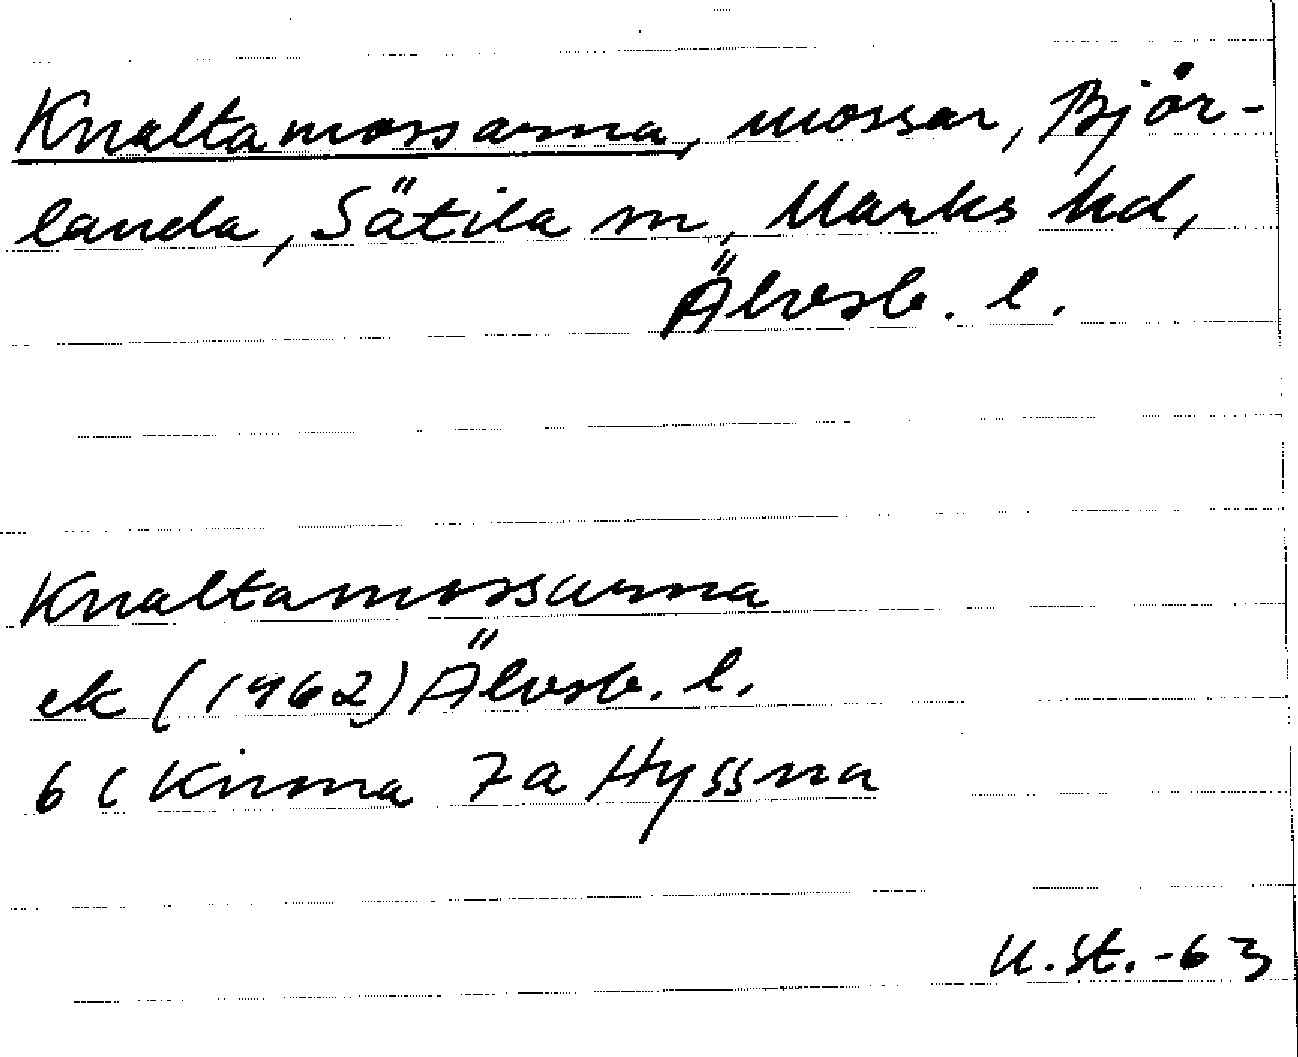 Knaltamossarna, mossar, Björ-
landa, Sätila sn, Marks hd,
Älvsb. l.
Knaltamossarna
ek (1962) Älvsb. l.
6 c Kinna 7a Hyssna
U.St.-63